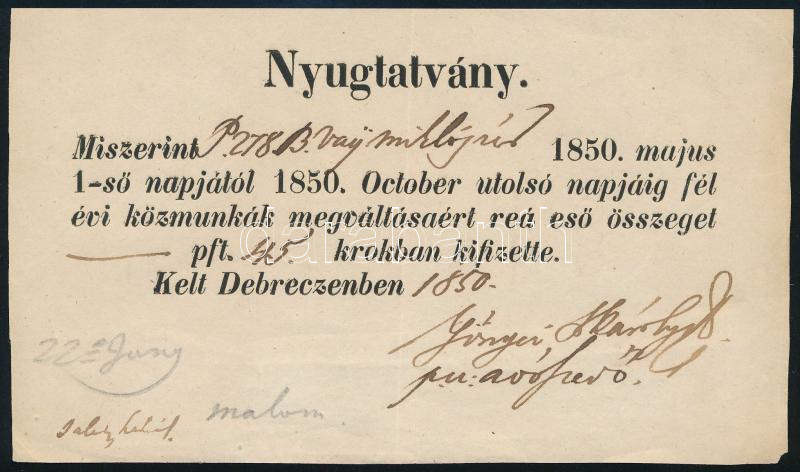 Nyugtatvány.
Miszerint P. 278 B. Vay Miklós 1850. majus
1-ső napjától 1850. October utolsó napjáig fél
évi közmunkák megváltásaért reá eső összeget
— pft. 45. krokban kifizette.
darabanth
Kelt Debreczenben 1850.
Károly
p.u: adószedő.
22
malom.